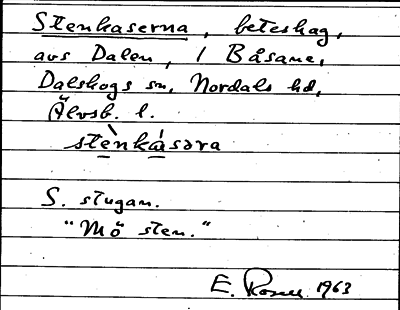 Stenkaserna, beteshag,
avs Dalen, 1 Båsane,
Dalskogs sn, Nordals hd,
Älvsb. l.
stènkásəra
S. stugan.
"Mö sten."
E. Rosell 1963